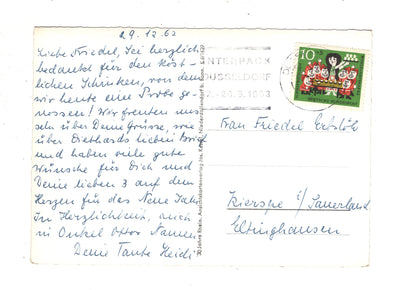 29.12.62
Liebe Friedel, Sei herzlich
bedankt für den köst-
lichen Schinken, von dem
wir heute eine Probe ge-
nossen! Wir freuten uns
sehr über Deine Grüsse, wie
über Diethards lieben Brief
und haben viele gute
Wünsche für Dich und
Deine lieben 3 auf dem
Herzen für das Neue Jahr.
In Herzlichkeit, auch
in Onkel Ottos Namen
Deine Tante Heidi
INTERPACK
DÜSSELDORF
1963
10
DEUTSCHE BUNDESPOST
Frau Friedel
Kierspe i/Sauerland
Eltinghausen